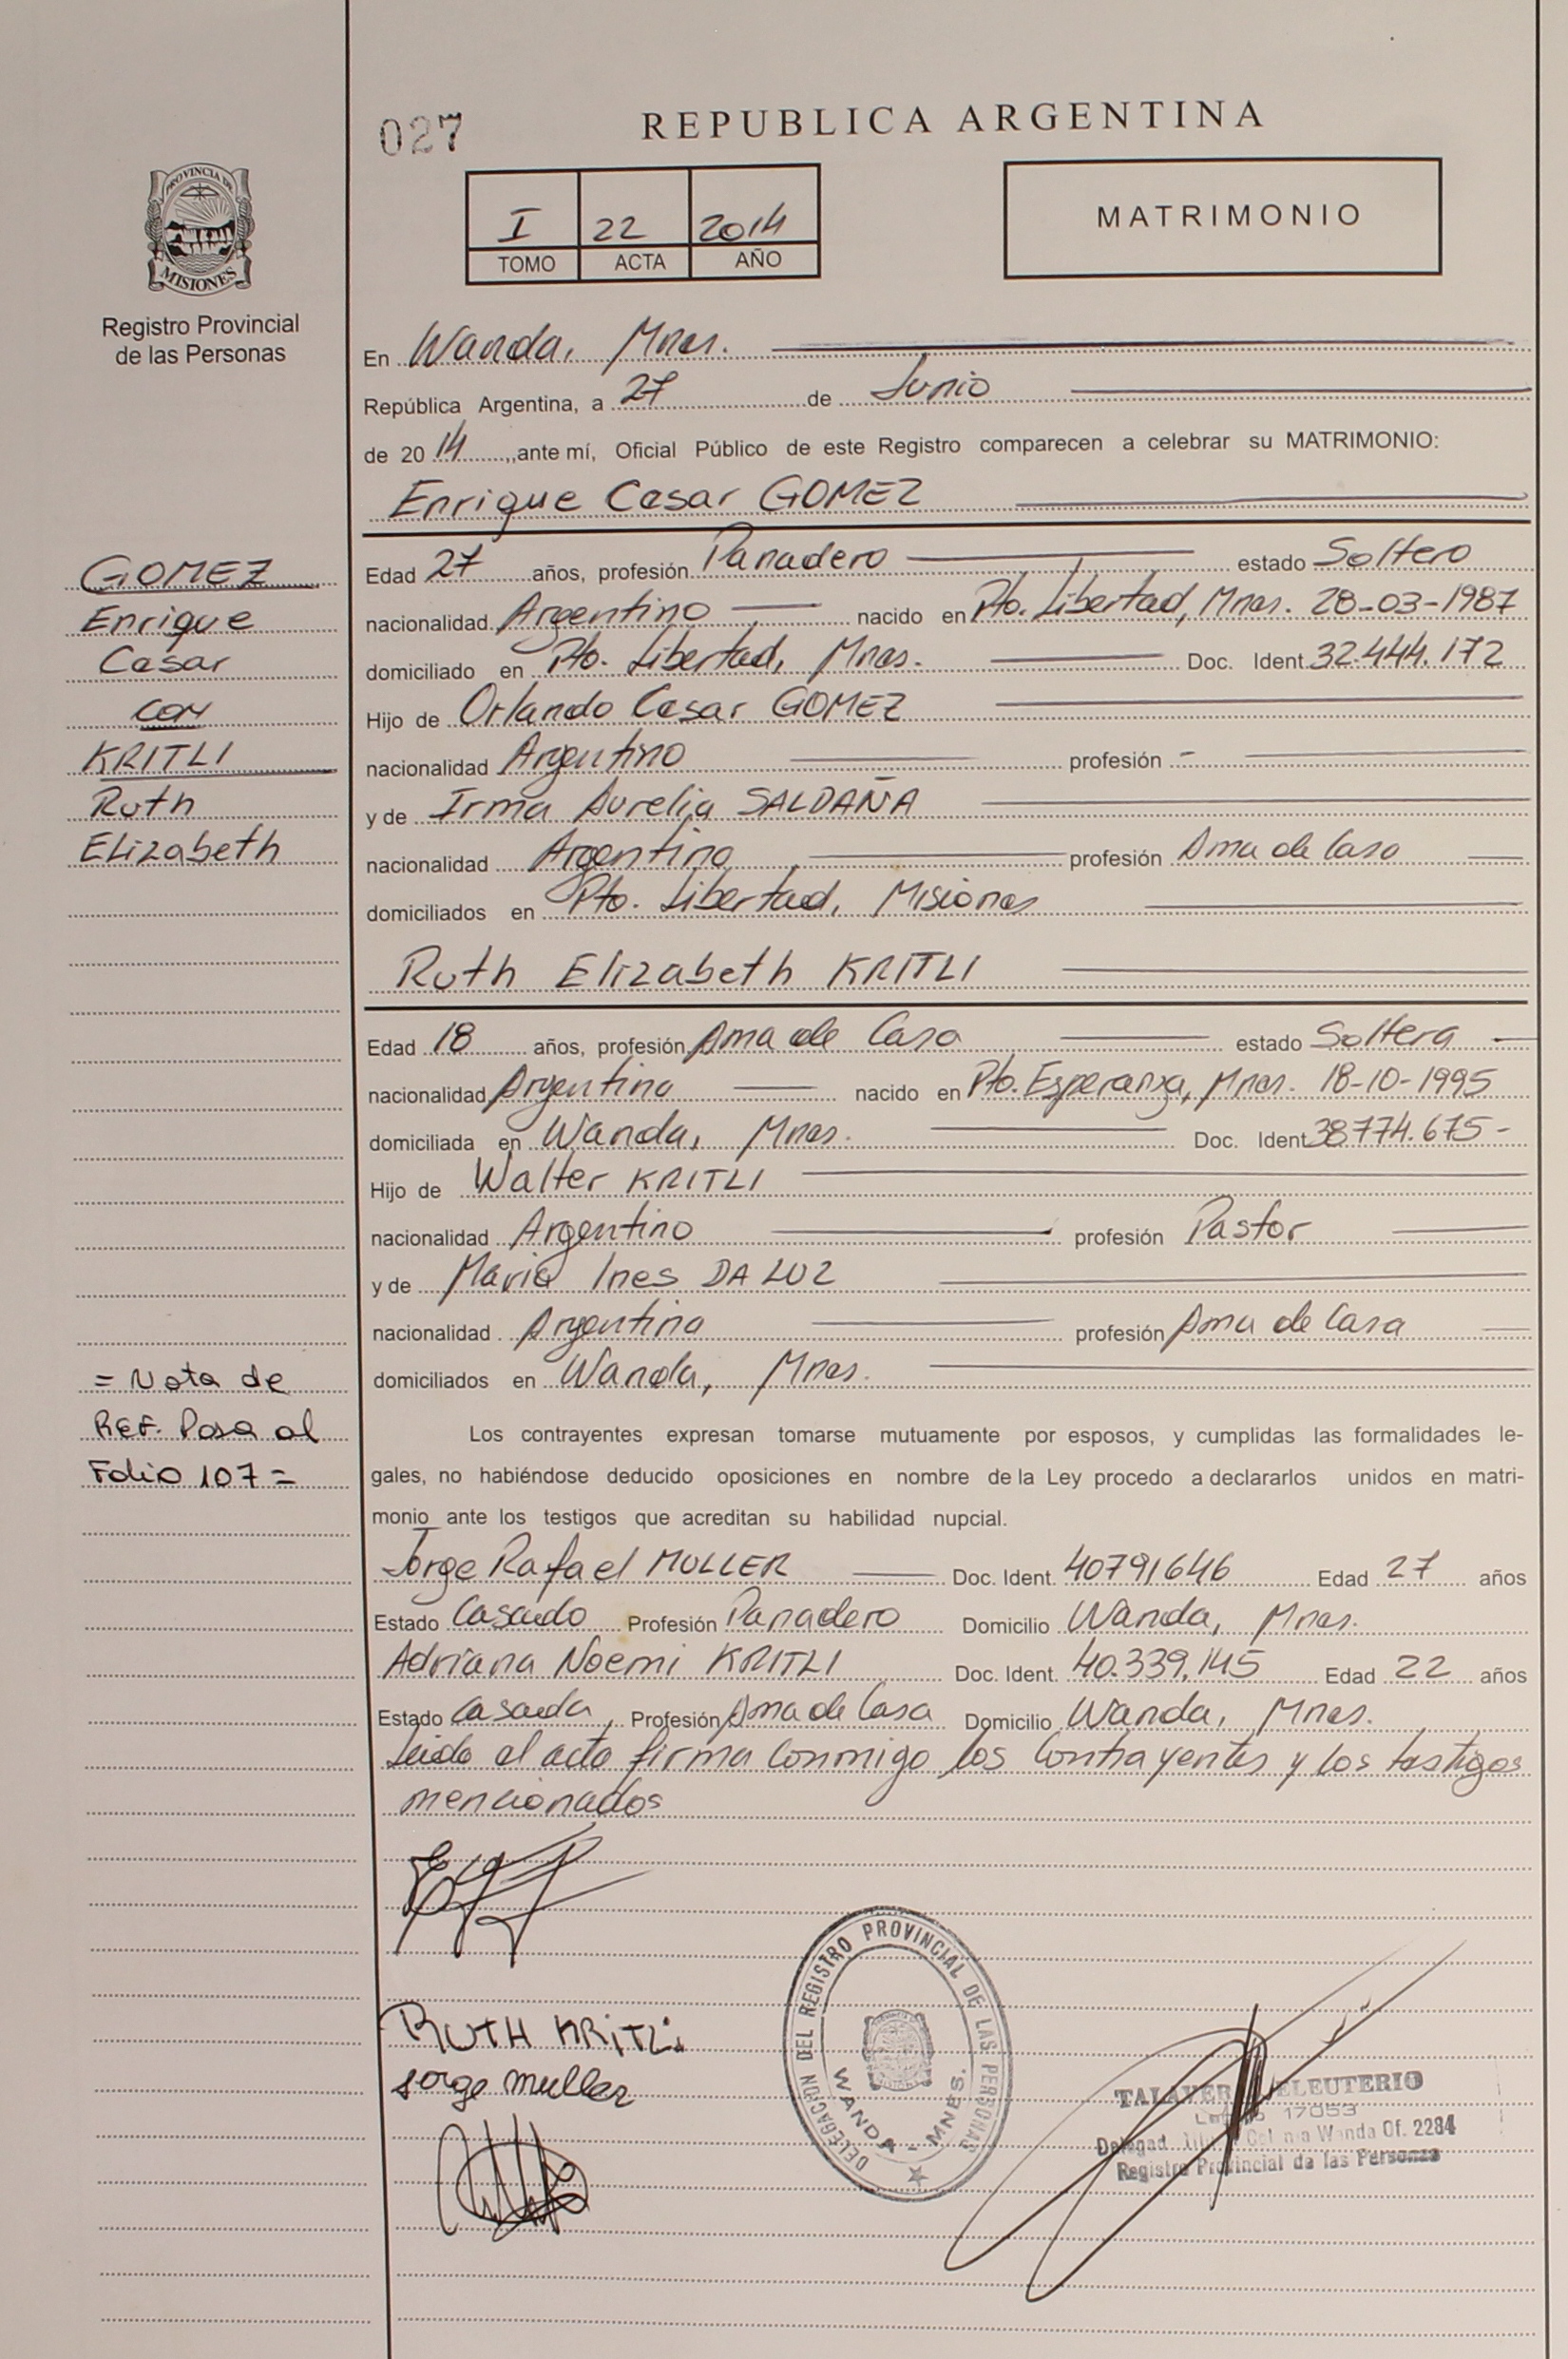 027
REPUBLICA ARGENTINA
PROVINCIA DE
MISIONES
Registro Provincial
de las Personas
I 22 2014
TOMO ACTA AÑO
MATRIMONIO
En Wanda, Mnes.
República Argentina, a 27 de Junio
de 20 14 ,,ante mí, Oficial Público de este Registro comparecen a celebrar su MATRIMONIO:
Enrique Cesar GOMEZ
GOMEZ
Enrique
Cesar
con
KRITLI
Ruth
Elizabeth
Edad 27 años, profesión Panadero estado Soltero
nacionalidad Argentino nacido en Pto. Libertad, Mnes. 28-03-1987
domiciliado en Pto. Libertad, Mnes. Doc. Ident. 32.444.172
Hijo de Orlando Cesar GOMEZ
nacionalidad Argentino profesión -
y de Irma Aurelia SALDAÑA
nacionalidad Argentina profesión Ama de Casa
domiciliados en Pto. Libertad, Misiones
Ruth Elizabeth KRITLI
Edad 18 años, profesión Ama de Casa estado Soltera
nacionalidad Argentina nacido en Pto. Esperanza, Mnes. 18-10-1995
domiciliada en Wanda, Mnes. Doc. Ident. 38.774.675-
Hijo de Walter KRITLI
nacionalidad Argentino profesión Pastor
y de Maria Ines DA LUZ
nacionalidad Argentina profesión Ama de Casa
domiciliados en Wanda, Mnes.
= Nota de
REF. Pasa al
Folio 107 =
Los contrayentes expresan tomarse mutuamente por esposos, y cumplidas las formalidades le-
gales, no habiéndose deducido oposiciones en nombre de la Ley procedo a declararlos unidos en matri-
monio ante los testigos que acreditan su habilidad nupcial.
Jorge Rafael MULLER Doc. Ident. 40791646 Edad 27 años
Estado Casado Profesión Panadero Domicilio Wanda, Mnes.
Adriana Noemi KRITLI Doc. Ident. 40.339.145 Edad 22 años
Estado Casada Profesión Ama de Casa Domicilio Wanda, Mnes.
Leida el acta firma conmigo los Contrayentes y los testigos
mencionados
RUTH KRITLi
Jorge muller
DELEGACION DEL REGISTRO PROVINCIAL DE LAS PERSONAS
WANDA - MNES.
ELEUTERIO
17053
Wanda Of. 2284
Registro Provincial de las Personas